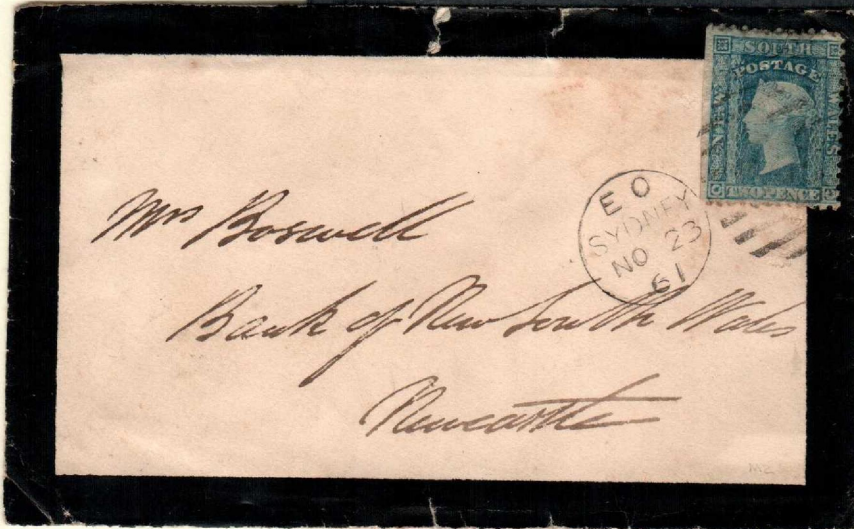 SOUTH
POSTAGE
NEW
WALES
TWO PENCE
E O
SYDNEY
NO 23
61
Mrs Boswell
Bank of New South Wales
Newcastle